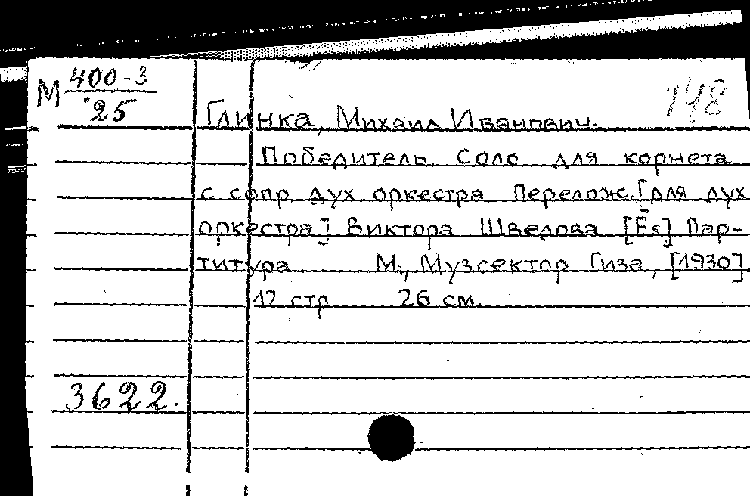 М 400-3
25
148
Глинка, Михаил Иванович.
Победитель. Соло для корнета
с сопр. дух. оркестра. Перелож. [для дух.
оркестра] Виктора Шведова. [Es] Пар-
титура. М., Музсектор Гиза, [1930].
12 стр. 26 см.
3622.